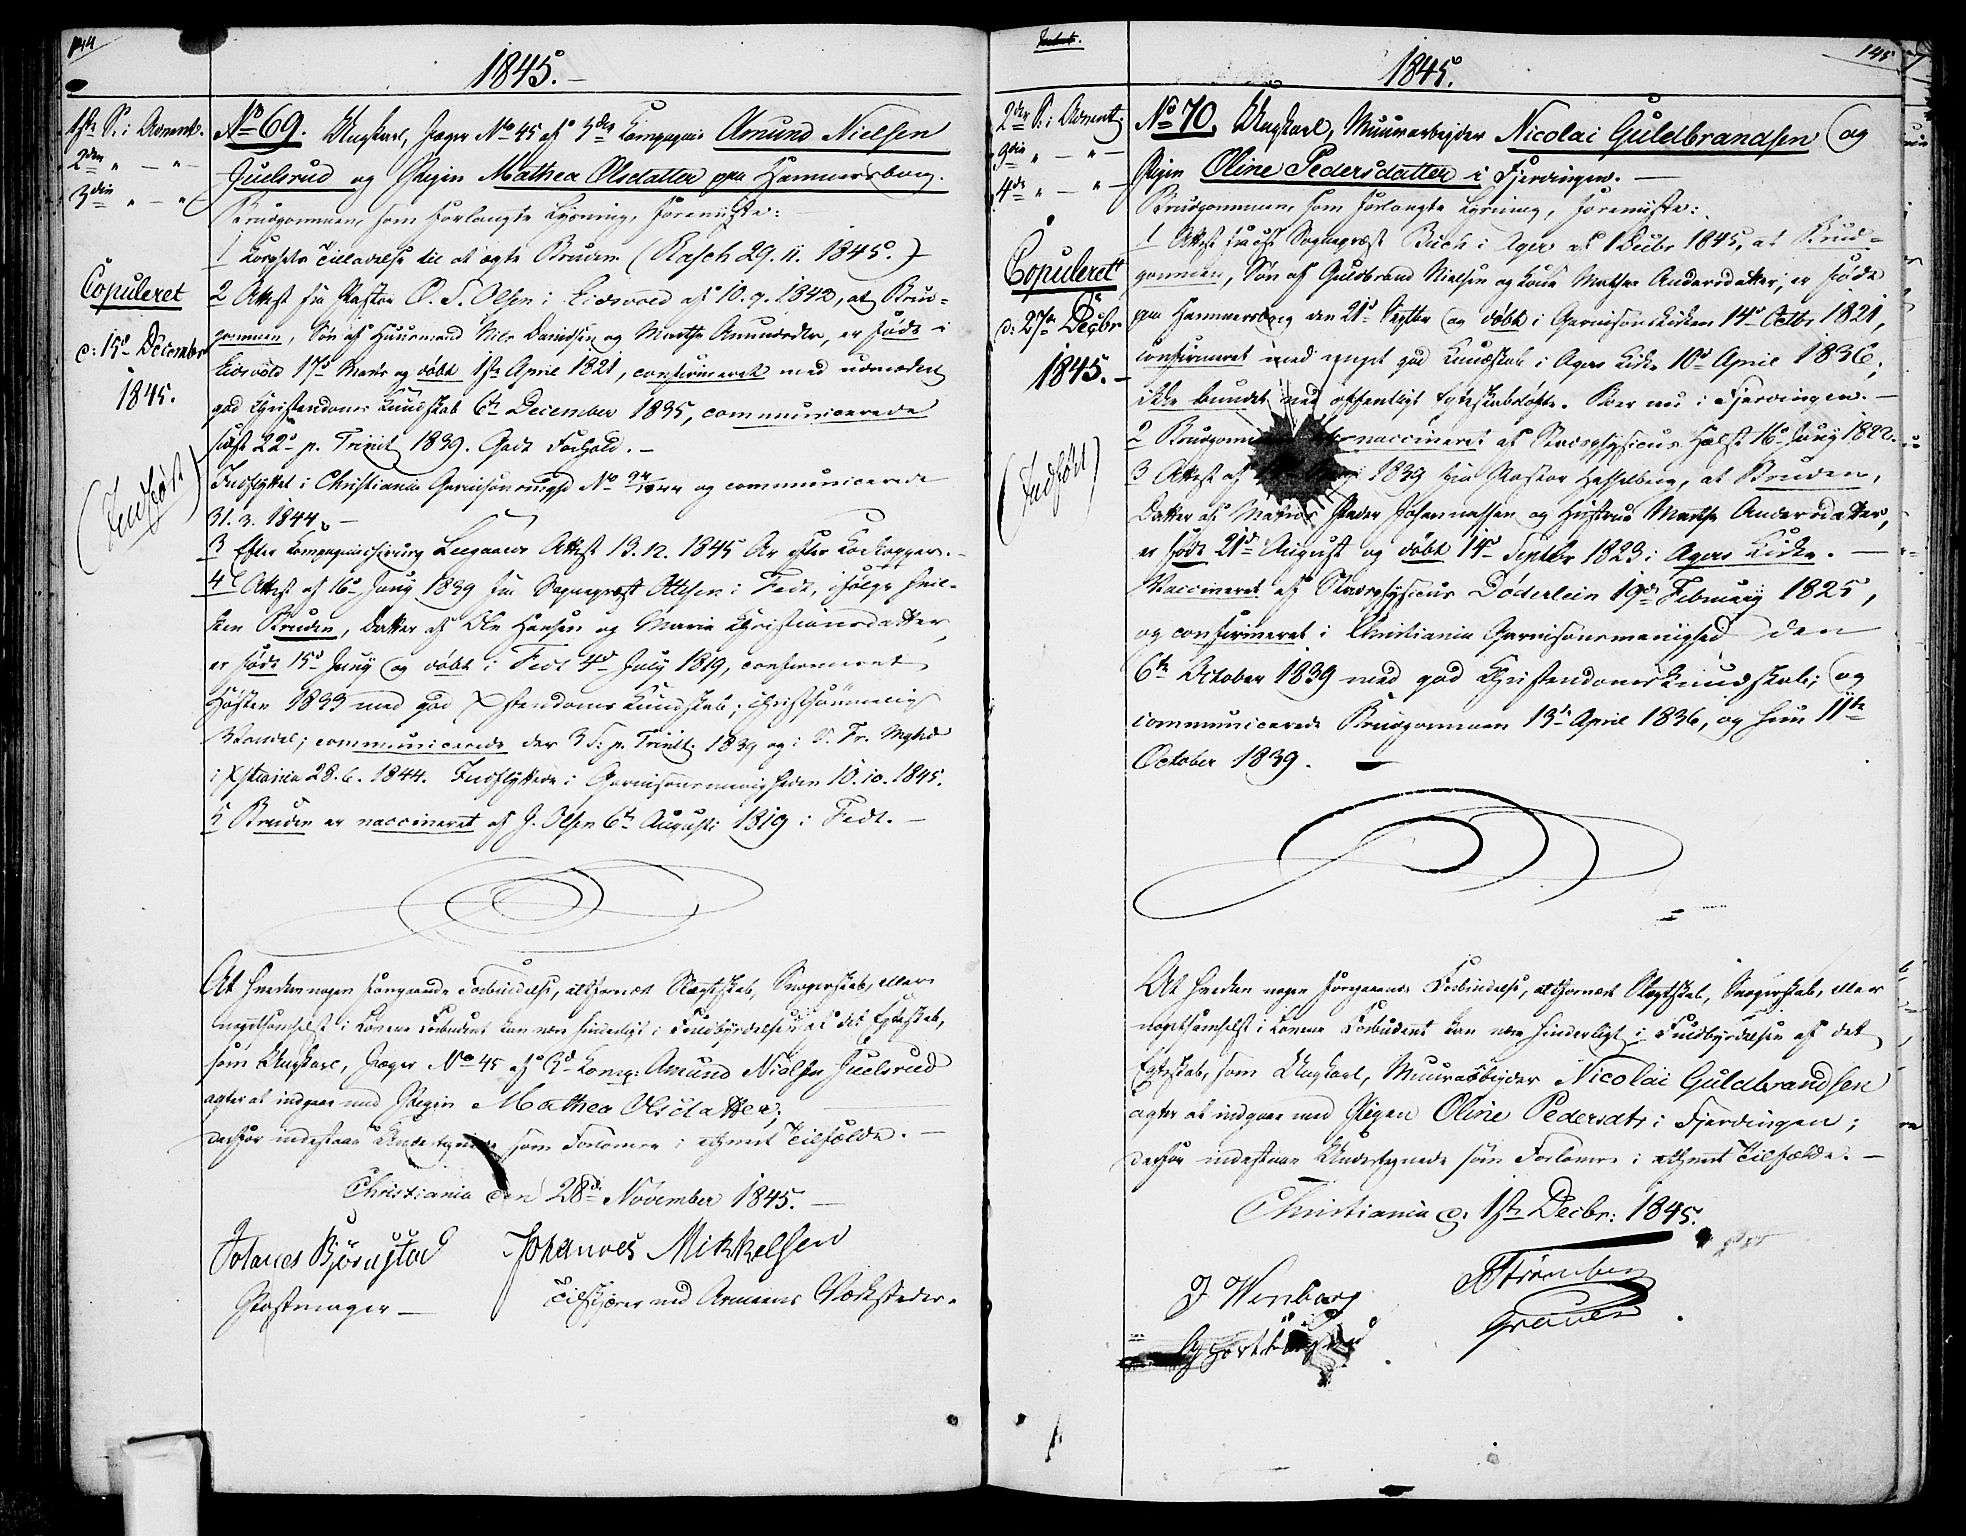 144
1845.
1ste S. i Advent.
2den " — "
3die " — "
Copuleret
d: 15de December
1845.
(Indført)
No 69. Ungkarl, Jæger No 45 af 3die Kompagnie Amund Nielsen
Juelsrud og Pigen Mathea Olsdatter paa Hammersborg.
Brudgommen, som forlangte Lysning, foreviiste:
1 Korpsets Tilladelse til at ægte Bruden (Rasch 29. 11. 1845.)
2 Attest fra Pastor O. S. Olsen i Eidsvold af 10. 9. 1843, at Brud-
gommen, Søn af Huusmand Nils Danielsen og Marthe Amundsdtr, er født i
Eidsvold 17de Marts og døbt 1ste April 1821, confirmeret med udmærket
god Christendoms Kundskab 6te December 1835, communicerede
sidst 22de p. Trinit 1839. Godt Forhold. —
Indflyttet i Christiania Garnisonsmgd No og communicerede
31. 3. 1844. —
3 Efter Kompagniechirurg Attest 13. 12. 1845 Ar efter Kokopper. —
4 Attest af 16de Juny 1839 fra Sognepræst Ottesen i Fedt, ifølge hvil-
ken Bruden, Datter af Ole Hansen og Marie Christiansdatter,
er født 15de Juny og døbt i Fedt 4de July 1819, confirmeret
Høsten 1833 med god Xstendoms Kundskab; christsømmelig
Vandel; communicerede der 3 S. p. Trinit. 1839 og i V. Fr. Mghd
i Xstiania 28. 6. 1844. Indflyttede i Garnisonsmenigheden 10. 10. 1845.
5 Bruden er vaccineret af J. Olsen 6te Augusti 1819 i Fedt. —
At hverken nogen forgaaende Forbindelse, altfornært Slægtskab, Svogerskab, eller
nogetsomhelst i Lovene Forbudent kan være hinderligt i Fuldbyrdelsen af det Egteskab,
som Ungkarl, Jæger No 45 af 3die Komp: Amund Nielsen Juelsrud
agter at indgaae med Pigen Mathea Olsdatter;
derfor indestaae Undertegnede som Forlovere i ethvert Tilfælde. —
Christiania den 28de November 1845. —
Johanes Bjørnstad Johannes Mikkelsen
Tilskjærer ved Armeens Værksteder.
145
1845.
2den S. i Advent.
3die " — "
4de " — "
Copuleret
d: 27de Decbr
1845. —
(Indført)
No 70. Ungkarl, Muurarbejder Nicolai Guldbrandsen og
Pigen Oline Pedersdatter i Fjerdingen. —
Brudgommen, som forlangte Lysning, foreviiste:
1 Attest fra Sognepræst Buch i Ager af 1 Decbr 1845, at Brud-
gommen, Søn af Guldbrand Nielsen og Kone Marthe Andersdatter, er født
paa Hammersborg den 21de Septbr og døbt i Garnisonskirken 14de Octbr 1821,
confirmeret med meget god Kundskab i Agers Kirke 10de April 1836;
ikke bundet ved offentligt Egteskabsløfte. Boer nu i Fjerdingen. —
2 Brudgommen vaccineret af Stadsphysicus Holst 16de Juny 1822.
3 Attest af 1839 fra Pastor Hesselberg, at Bruden,
Datter af Matros Peder Johannessen og Hustrue Marthe Andersdatter,
er født 21de August og døbt 14de Septbr 1823 i Agers Kirke. —
Vaccineret af Stadsphysicus Døderlein 19de February 1825,
og confirmeret i Christiania Garnisonsmenighed den
6te October 1839 med god Christendomskundskab; og
communicerede Brudgommen 13de April 1836, og hun 11te
October 1839. —
At hverken nogen forgaaende Forbindelse, altfornært Slægtskab, Svogerskab, eller
nogetsomhelst i Lovene Forbudent kan være hinderligt i Fuldbyrdelsen af det
Egteskab, som Ungkarl, Muurarbejder Nicolai Guldbrandsen
agter at indgaae med Pigen Oline Pedersdtr i Fjerdingen;
derfor indestaae Undertegnede som Forlovere i ethvert Tilfælde. —
Christiania d: 1ste Decbr: 1845.
J Wenborg Strømberg